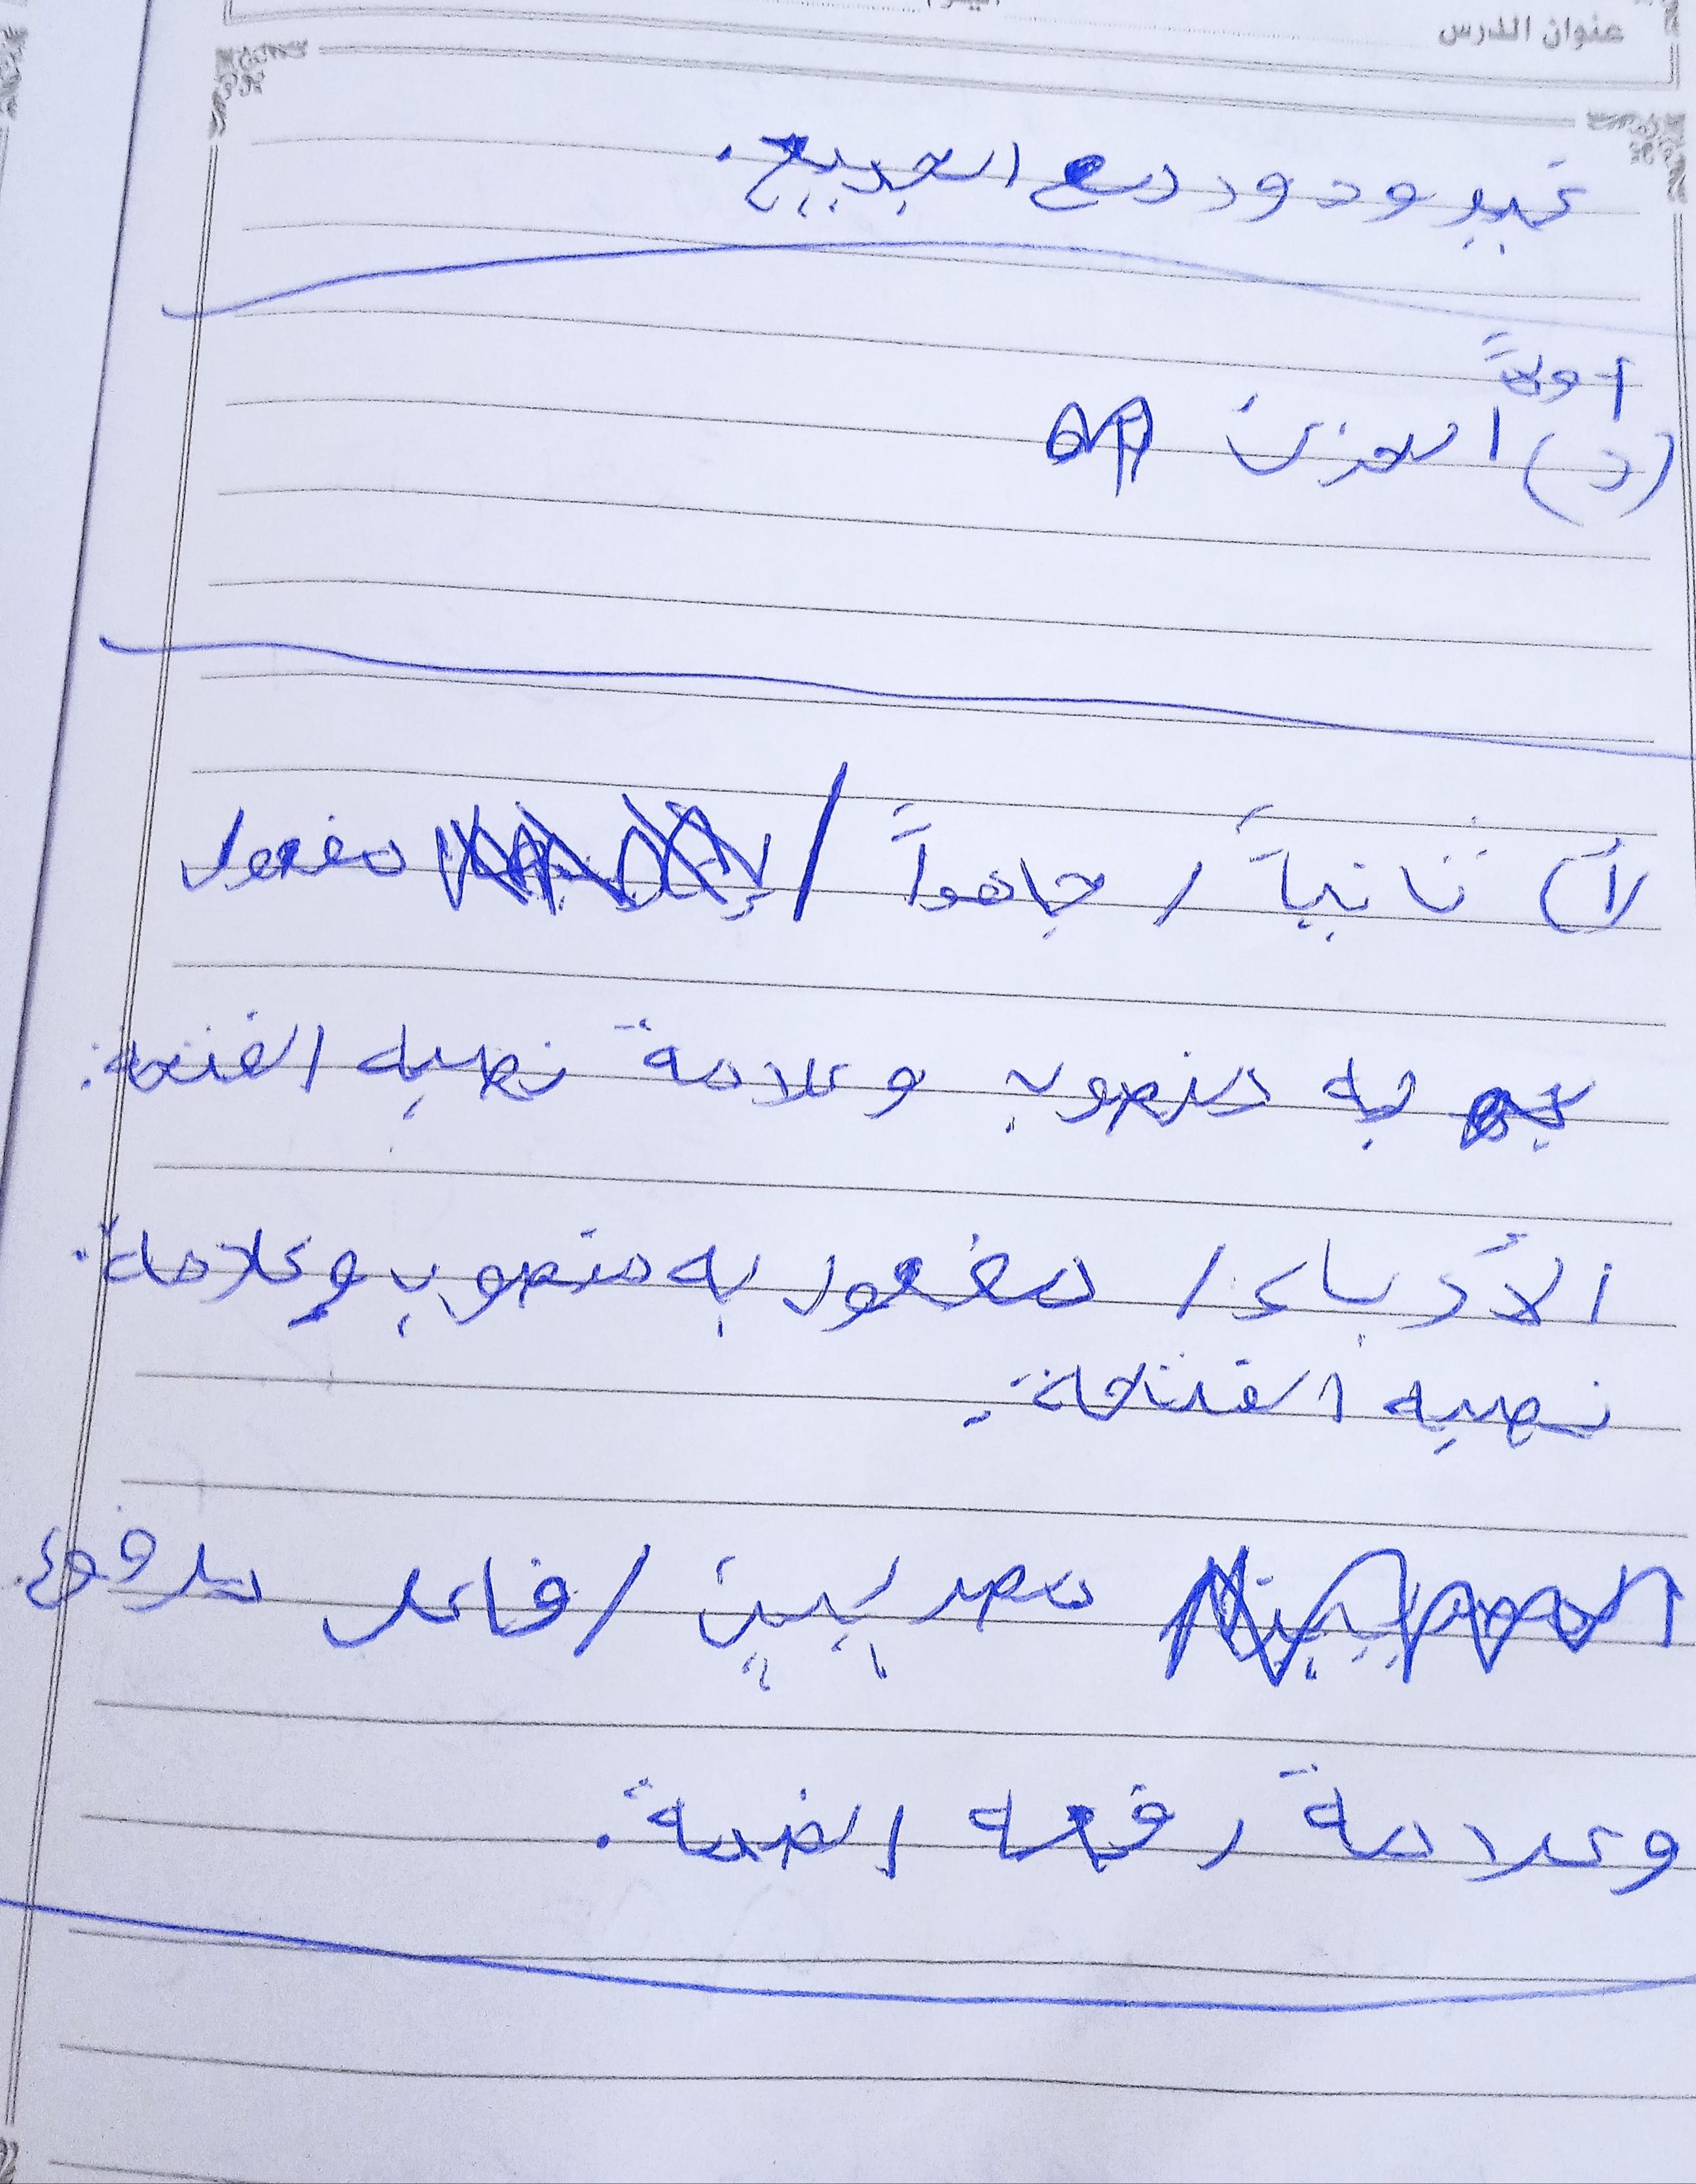 عنوان الدرس
غير ودود مع الجميع.
أولاً
(د) الحزن
ثانياً / جاهداً / مفعول
به منصوب وعلامة نصبه الفتحة.
الأدباء / مفعول به منصوب وعلامة.
نصبه الفتحة.
مصريين / فاعل مرفوع.
وعلامة رفعه الضمة.